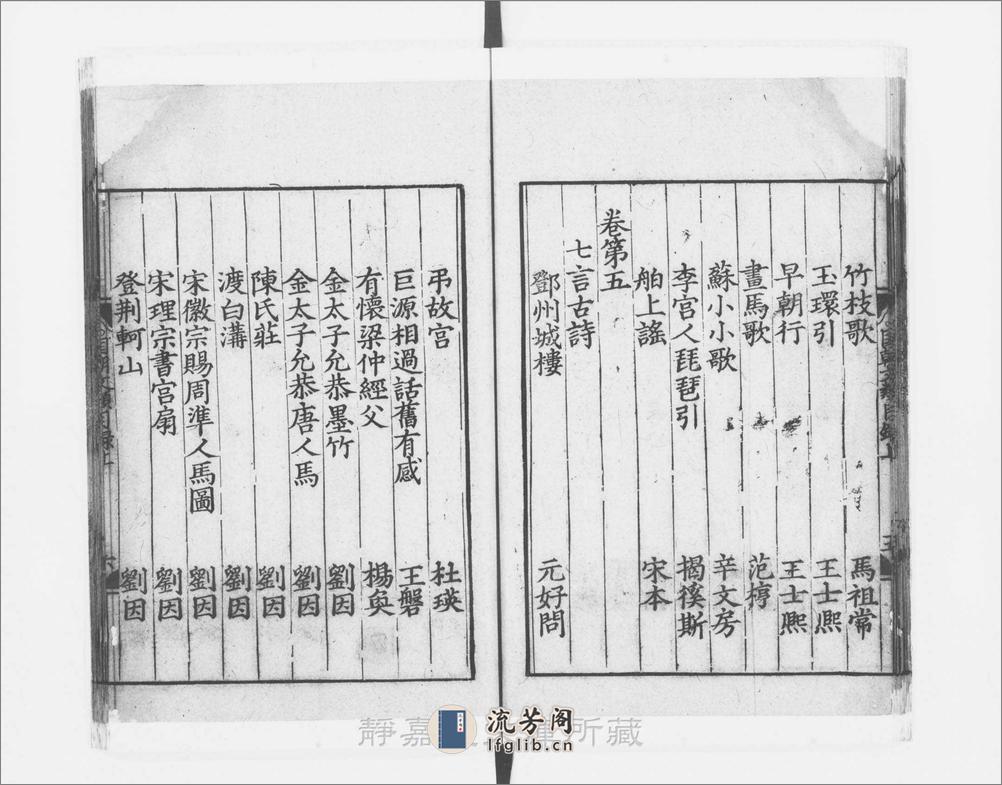 竹枝歌 馬祖常
玉環引 王士熈
早朝行 王士熈
畫馬歌 范梈
蘇小小歌 辛文房
李宫人琵琶引 揭徯斯
舶上謠 宋本
卷第五
七言古詩
鄧州城樓 元好問
弔故宫 杜瑛
巨源相過話舊有感 王磐
有懷梁仲經父 楊奐
金太子允恭墨竹 劉因
金太子允恭唐人馬 劉因
陳氏莊 劉因
渡白溝 劉因
宋徽宗賜周準人馬圖 劉因
宋理宗書宫扇 劉因
登荆軻山 劉因
靜嘉 所藏
流芳阁
lfglib.cn